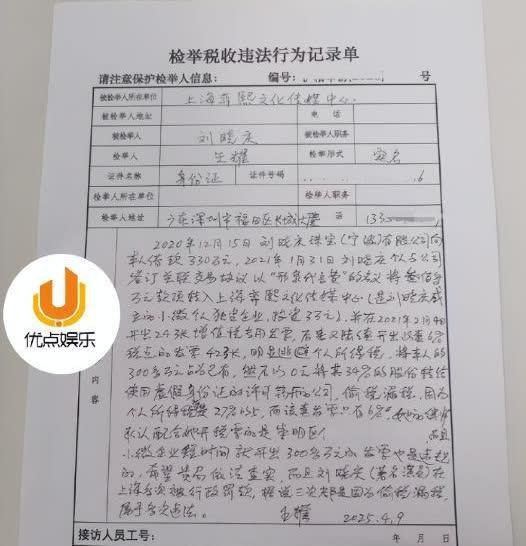 检举税收违法行为记录单
请注意保护检举人信息: 编号: 号
被检举人所在单位 上海菲熙文化传媒中心
被检举人地址 电 话
被检举人 刘晓庆 被检举人职务
检举人 王耀 检举形式 实名
证件名称 身份证 证件号码 6
检举人所在单位 检举人职务
检举人地址 广东深圳市福田区长城大厦 133
2020年12月15日 刘晓庆珠宝(宁波)有限公司向
本人借款330万元, 2021年1月31日刘晓庆个人与公司
签订 关联交易协议 以“形象代言费”的名义将叁佰多
万元款项转入上海菲熙文化传媒中心(是刘晓庆成
立的小微个人独资企业, 并在2021年2月4日
开出24张增值税专用发票, 后来又陆续开出 6%
税点的发票42张, 明显逃避个人所得税, 将本人的
300多万元占为己有, 然后以0元将其34%的股份转给
使用虚假身份证的许 的公司, 偷税漏税. 因为
个人所得税 27%以上, 而该类发票只有6%
承认配合她开税票的是崇明区 而且
小微企业短时间就开出300多万元的发票也是违规
的, 希望贵局依法查实, 而且刘晓庆(著名演员)在
上海多次被行政罚款, 据说三次都是因为偷税漏税,
属于多次违法。
王耀 2025.4.9
内
容
接访人员工号: 年 月 日
优点娱乐